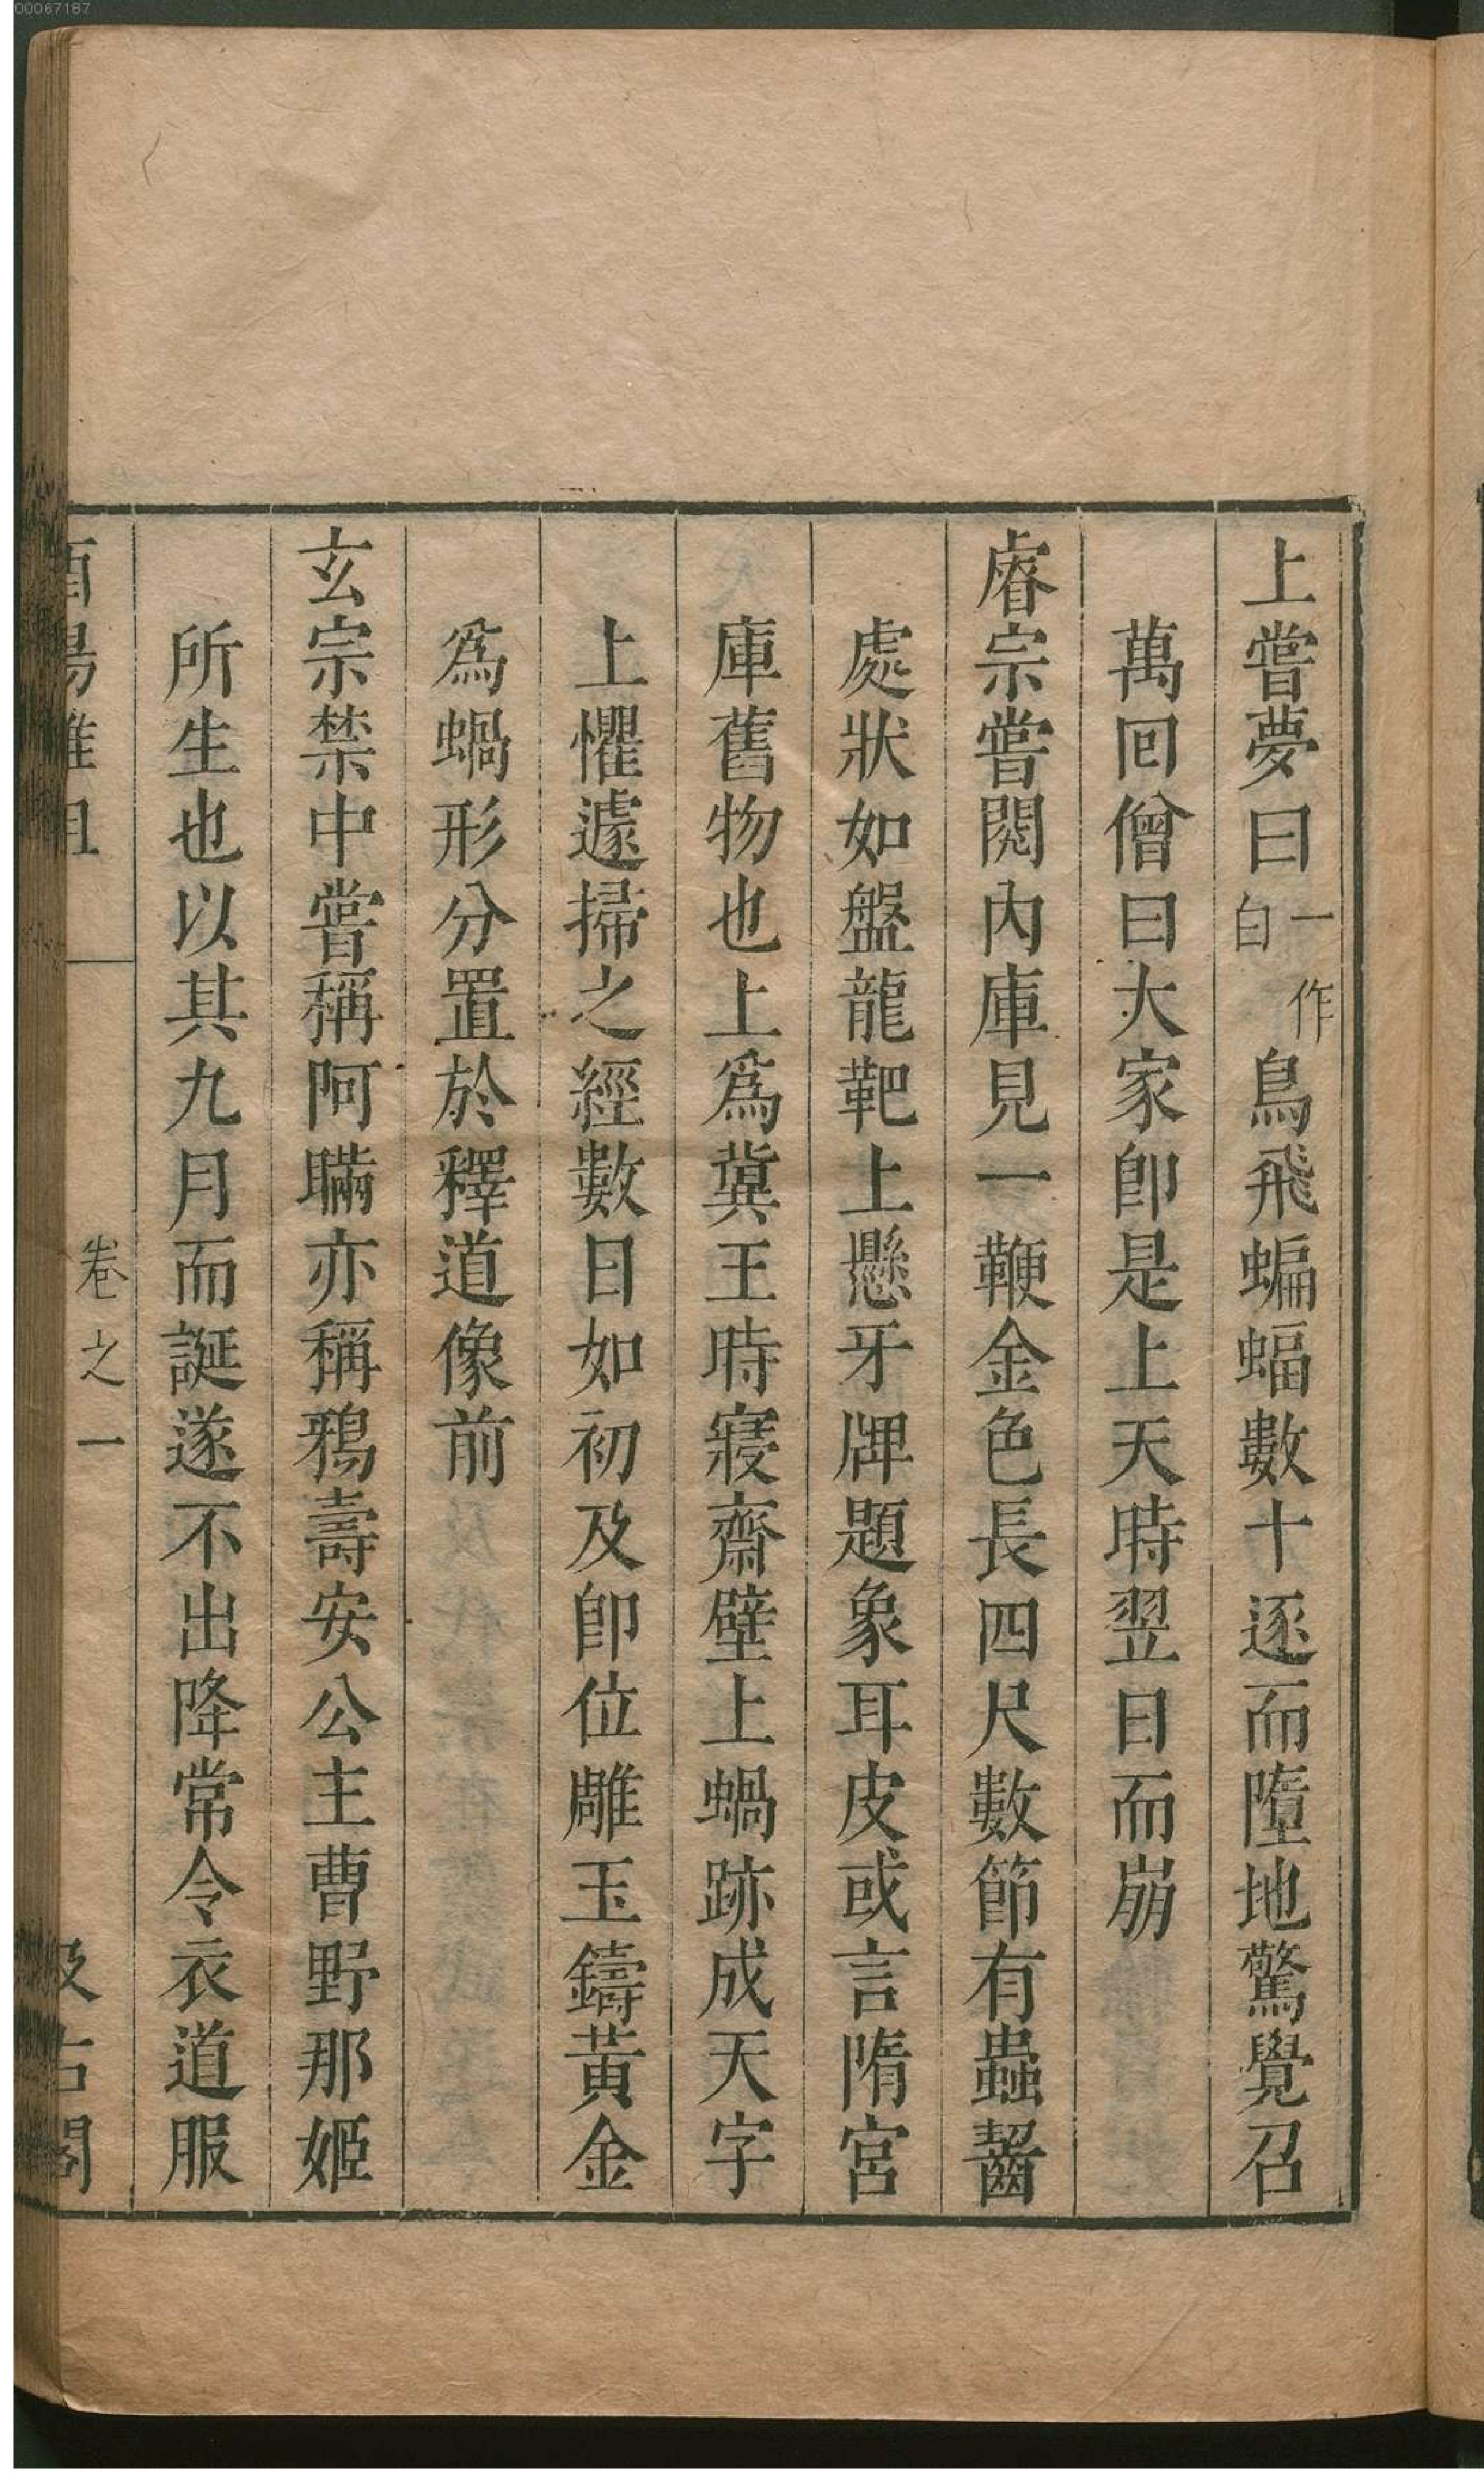 00067187
上嘗夢曰一作白鳥飛蝙蝠數十逐而墮地驚覺召
萬囘僧曰大家卽是上天時翌日而崩
睿宗嘗閱內庫見一鞭金色長四尺數節有蟲齧
處狀如盤龍靶上懸牙牌題象耳皮或言隋宮
庫舊物也上爲冀王時寢齋壁上蝸跡成天字
上懼遽掃之經數日如初及卽位雕玉鑄黃金
爲蝸形分置於釋道像前
玄宗禁中嘗稱阿瞞亦稱鴉壽安公主曹野那姬
所生也以其九月而誕遂不出降常令衣道服
酉陽雜俎 卷之一 汲古閣